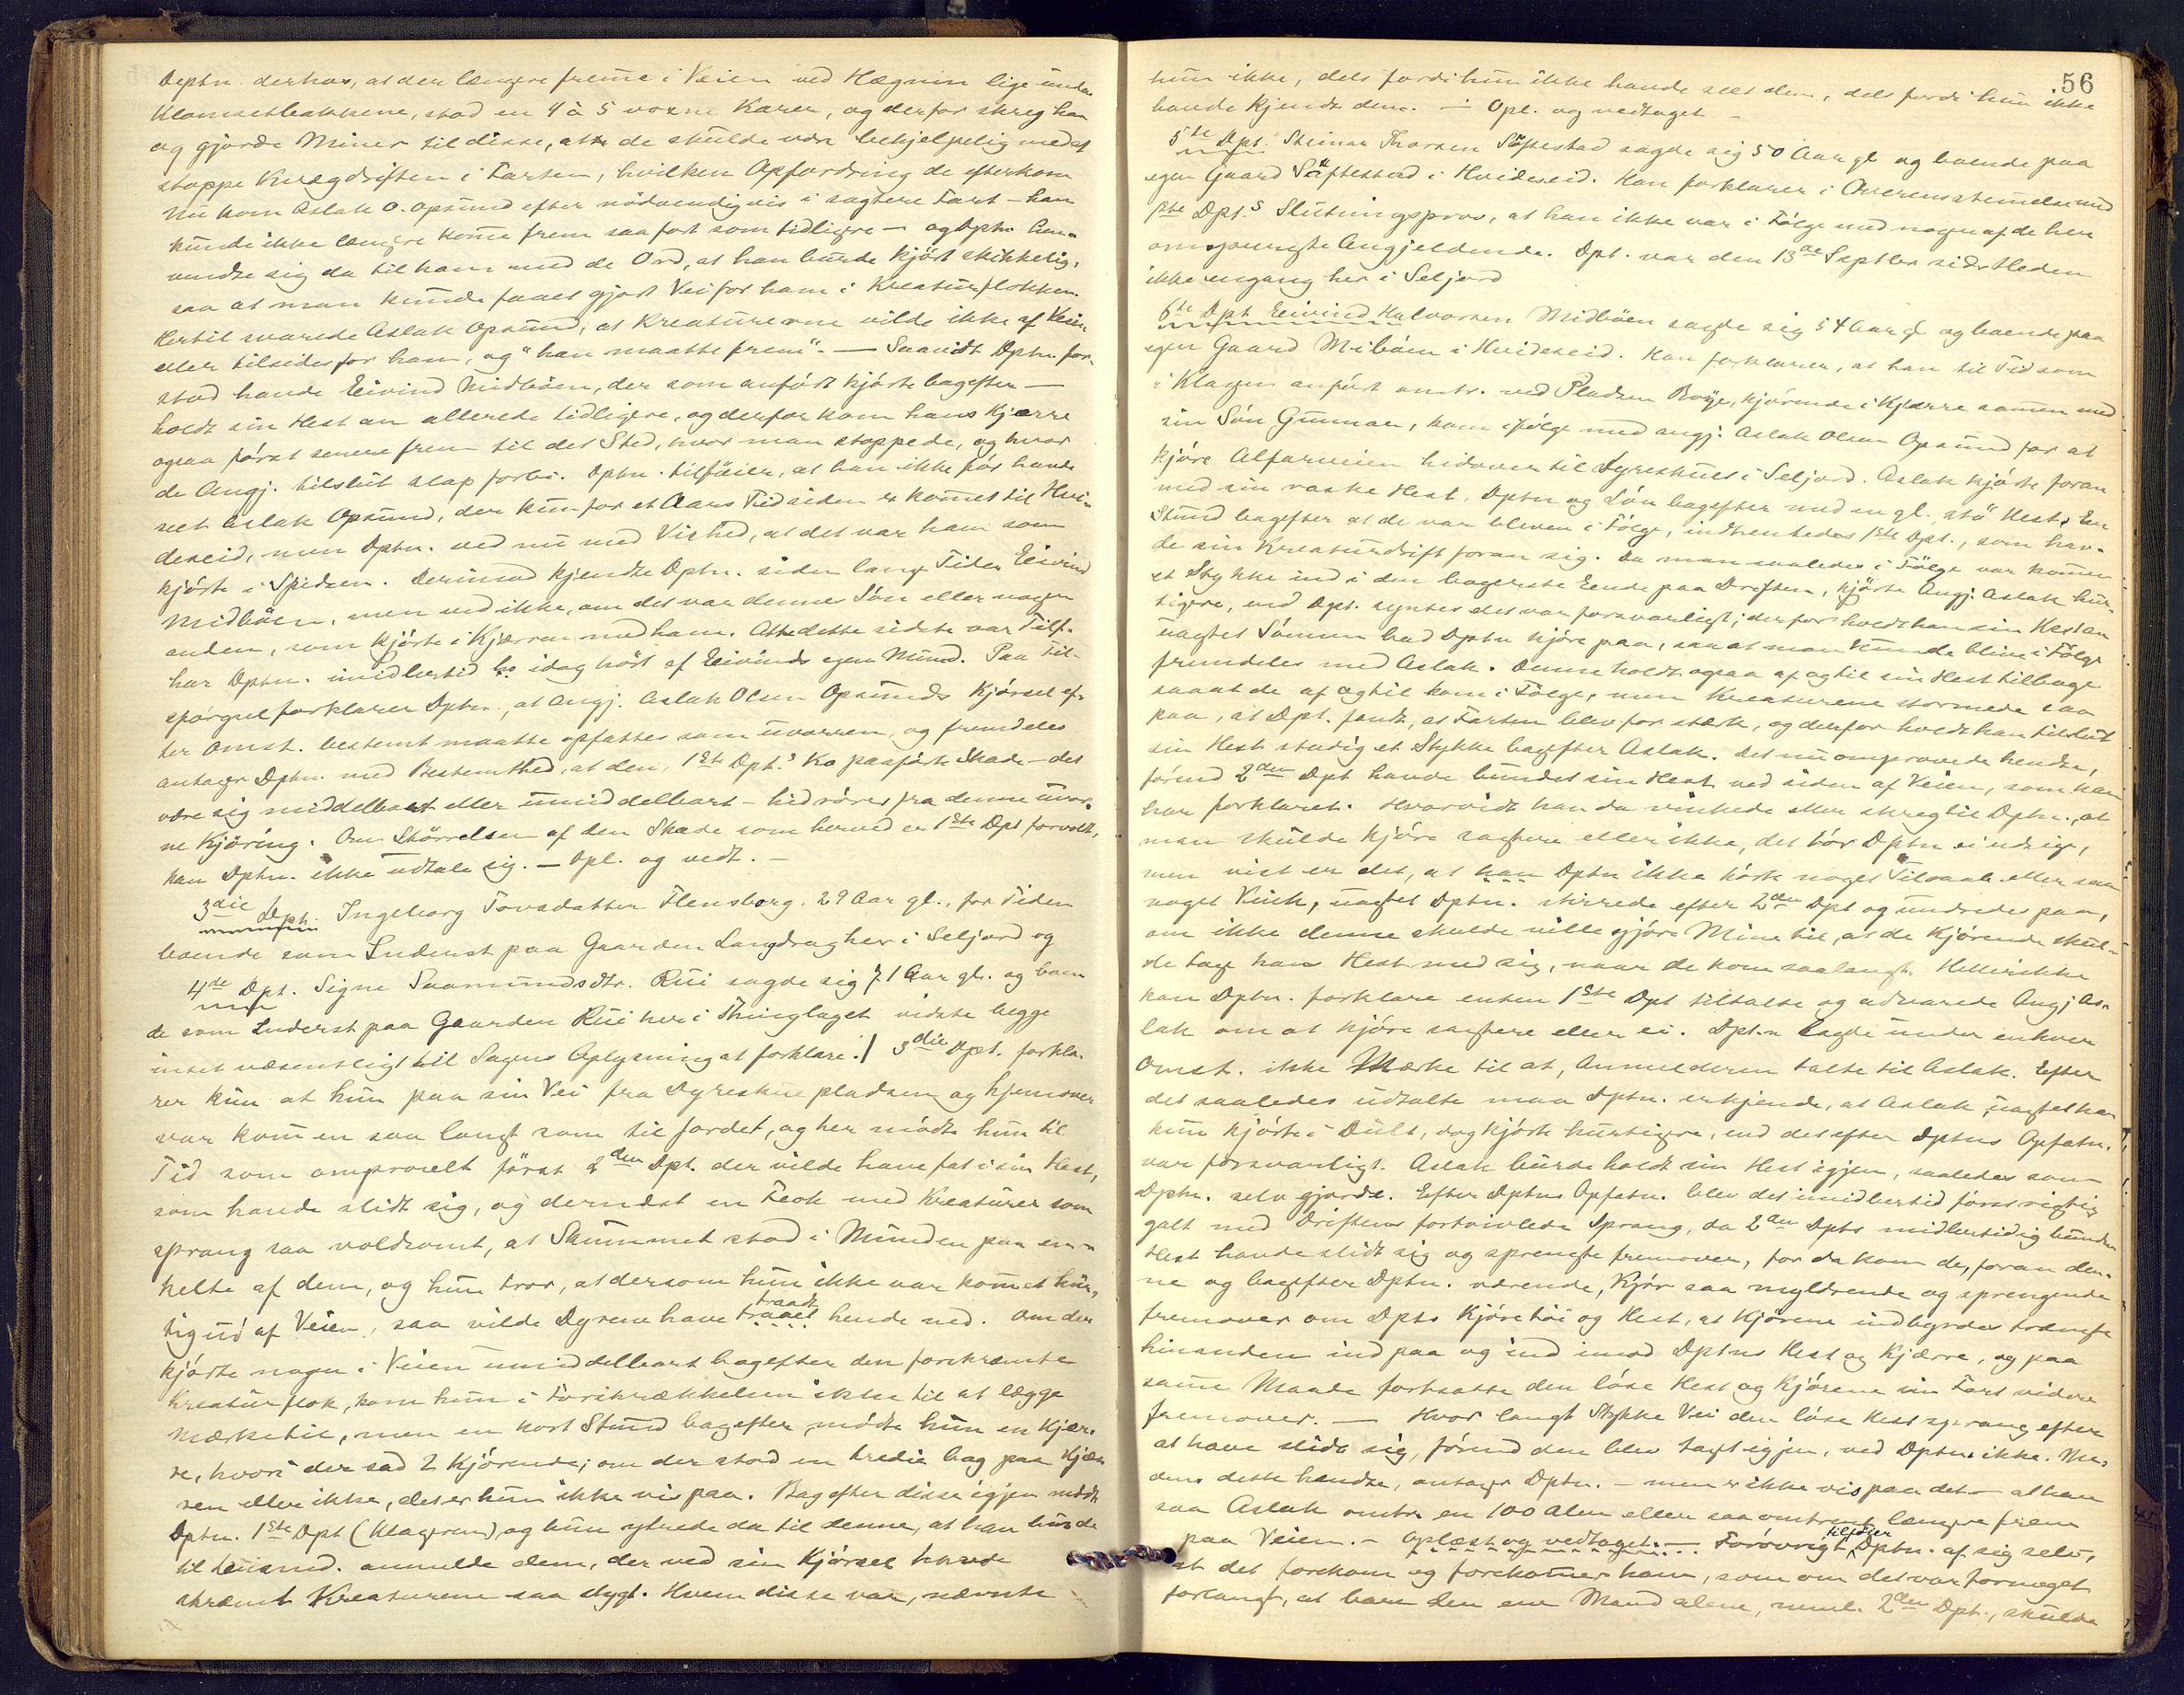 Deptn. derhos, at der længere fremme i Veien ved Hægnin lige under
Klomsetbakkene, stod en 4 à 5 voxne Karer, og derfor skreg han
og gjorde Miner til disse, at de skulde være behjelpelig med at
stoppe Kvægdriften i Farten, hvilken Opfordring de efterkom
Nu kom Aslak O. Opsund efter nödvendigvis i sagtere Fart – han
kunde ikke længere komme frem saa fort som tidligere – og Dptn. hen-
vendte sig da til ham med de Ord, at han burde kjört skikkelig,
saa at man kunde faaet gjort Vei for ham i Kreaturflokken.
Hertil svarede Aslak Opsund, at Kreaturerne vilde ikke af Veien
eller tilsides for ham, og "han maatte frem". — Saavidt Dptn. for-
stod havde Eivind Midböen, der som anfört kjörte bagefter —
holdt sin Hest an allerede tidligere, og derfor kom hans Kjærre
ogsaa först senere frem til det Sted, hvor man stoppede, og hvor
de Angj. tilslut slap forbi. Dptn. tilföier, at han ikke för havde
seet Aslak Opsund, der kun for et Aars Tid siden er kommet til Hvi-
deseid, men Dptn. ved nu med Vished, at det var ham som
kjörte i Spidsen. Derimod kjendte Dptn. siden lang Tid Eivind
Midböen, men ved ikke, om det var dennes Sön eller nogen
anden, som kjörte i Kjærren med ham. At dette sidste var Tilf.
har Dptn. imidlertid idag hört af Eivinds egen Mund. Paa Til-
spörgsel forklarer Dptn., at Angj. Aslak Olsen Opsunds Kjörsel ef-
ter Omst. bestemt maatte opfattes som uvorren, og fremdeles
antager Dptn. med Bestemthed, at den, 1ste Dpt.s Ko paaförte Skade – det
være sig middelbart eller umiddelbart – hidrörer fra denne uvor-
ne Kjöring. Om Störrelsen af den Skade som herved er 1ste Dpt forvoldt,
kan Dptn. ikke udtale sig. — Opl. og vedt. –
3die Dpt. Ingeborg Tovsdatter Flensborg. 29 Aar gl., for Tiden
boende som Inderst paa Gaarden Langdrag her i Seljord og
4de Dpt. Signe Saamundsdtr. Rui sagde sig 71 Aar gl. og boen
de som Inderst paa Gaarden Rui her i Thinglaget vidste begge
intet væsentligt til Sagens Oplysning at forklare. / 3die Dpt. forkla-
rer kun at hun paa sin Vei fra Dyreskuepladsen og hjemover
var kommen saa langt som til fordet, og her mödte hun til
Tid som omprovelt först 2den Dpt. der vilde have fat i sin Hest,
som havde slidt sig, og dernæst en Flok med Kreaturer som
sprang saa voldsomt, at Skummet stod i Munden paa en-
kelte af dem, og hun tror, at dersom hun ikke var kommet hur-
tig ud af Veien, saa vilde Dyrene have traaet traadt hende ned. Om der
kjörte nogen i Veien umiddelbart bagefter den forskræmte
Kreaturflok, kom hun i Forskrækkelsen ikke til at lægge
Mærke til, men en kort Stund bagefter mödte hun en Kjær-
re, hvori der sad 2 Kjörende; om der stod en tredie bag paa Kjær-
ren eller ikke, det er hun ikke vis paa. Bagefter disse igjen mödte
Dptn. 1ste Dpt (Klageren), og hun ytrede da til denne, at han burde
til Lensmd. anmelde dem, der ved sin Kjörsel havde
skræmt Kreaturene saa stygt. Hvem disse var, nævnte
56
hun ikke, dels fordi hun ikke havde seet dem, dels fordi hun ikke
havde kjendt dem. – Opl. og vedtaget –
5te Dpt. Steinar Thorsen Söftestad sagde sig 50 Aar gl og boende paa
egen Gaard Söftestad i Hvideseid. Han forklarer i Overensstemmelse med
1ste Dpt.s Slutningsprov, at han ikke var i Fölge med nogen af de her
omspurgte Angjeldende. Dpt. var den 13de Septbr sidstleden
ikke engang her i Seljord
6te Dpt Eivind Halvorsen Midböen sagde sig 54 Aar gl og boende paa
egen Gaard Miböen i Hvideseid. Han forklarer, at han til Tid som
i Klagen anfört omtr. ved Pladsen Böye, kjörende i Kjærre sammen med
sin Sön Gunnar, kom ifölge med angj. Aslak Olsen Opsund for at
kjöre Alfarveien hidover til Dyreskuet i Seljord. Aslak kjörte foran
med sin raske Hest, Dptn og Sön bagefter med en gl. "stö" Hest. En
Stund bagefter at de var bleven i Fölge, indhentedes 1ste Dpt., som hav-
de sin Kreaturdrift foran sig. Da man saaledes i Fölge var kommen
et Stykke ind i den bagerste Ende paa Driften, kjörte Angj. Aslak hur-
tigere, end Dpt. syntes det var forsvarligt; derfor holdt han sin Hest an
uagtet Sönnen bad Dptn kjöre paa, saa at man kunde blive i Fölge
fremdeles med Aslak. Denne holdt ogsaa af og til sin Hest tilbage
saa at de af og til kom i Fölge, men Kreaturene stormede saa
paa, at Dpt. fandt, at Farten blev for stærk, og derfor holdt han tilslut
sin Hest stadig et Stykke bagefter Aslak. Det nu omprovede hendte,
förend 2den Dpt havde bundet sin Hest ved siden af Veien, som han
har forklaret. Hvorvidt han da vinkede eller skreg til Dptn., at
man skulde kjöre sagtere eller ikke, det tör Dptn ei udsige,
men vist er det, at han Dptn ikke hörte noget Tilraab eller saa
noget Vink, uagtet Dptn. stirrede efter 2den Dpt og undredes paa,
om ikke denne skulde ville gjöre Mine til, at de Kjörende skul-
de tage hans Hest med sig, naar de kom saalangt. Hellerikke
kan Dptn. forklare enten 1ste Dpt tiltalte og advarede Angj As-
lak om at kjöre sagtere eller ei. Dpt.n lagde under enhver
Omst. ikke Mærke til at, Anmelderen talte til Aslak. Efter
det saaledes udtalte maa Dptn. erkjende, at Aslak, uagtet han
kun kjörte i Dult, dog kjörte hurtigere, end det efter Dptns Opfatn.
var forsvarligt. Aslak burde holdt sin Hest igjen, saaledes som
Dptn. selv gjorde. Efter Dptns Opfatn. blev det imidlertid först rigtig
galt med Driftens fortvivlede Sprang, da 2den Dpts midlertidig bundne
Hest havde slidt sig og sprengte fremover, for da kom de, foran den-
ne og bagefter Dptn. værende, Kjör saa myldrende og sprengende
fremover om Dpts Kjöretöi og Hest, at Kjörene indbyrdes trængte
hinanden ind paa og ind imod Dptns Hest og Kjærre, og paa
samme Maade fortsatte den löse Hest og Kjörene sin Fart videre
fremover. — Hvor langt Stykke Vei den löse Hest sprang efter
at have slidt sig, förend den blev tagt igjen, ved Dptn. ikke. Me-
dens dette hændte, antager Dptn. – men er ikke vis paa det – at han
saa Aslak omtr. en 100 alen eller saa omtrent længere frem
paa Veien. – Oplæst og vedtaget. — Forövrigt tilföier Dptn. af sig selv,
at det forekom og forekommer ham, som om det var formeget
forlangt, at bare den ene Mand alene, neml. 2den Dpt., skulde